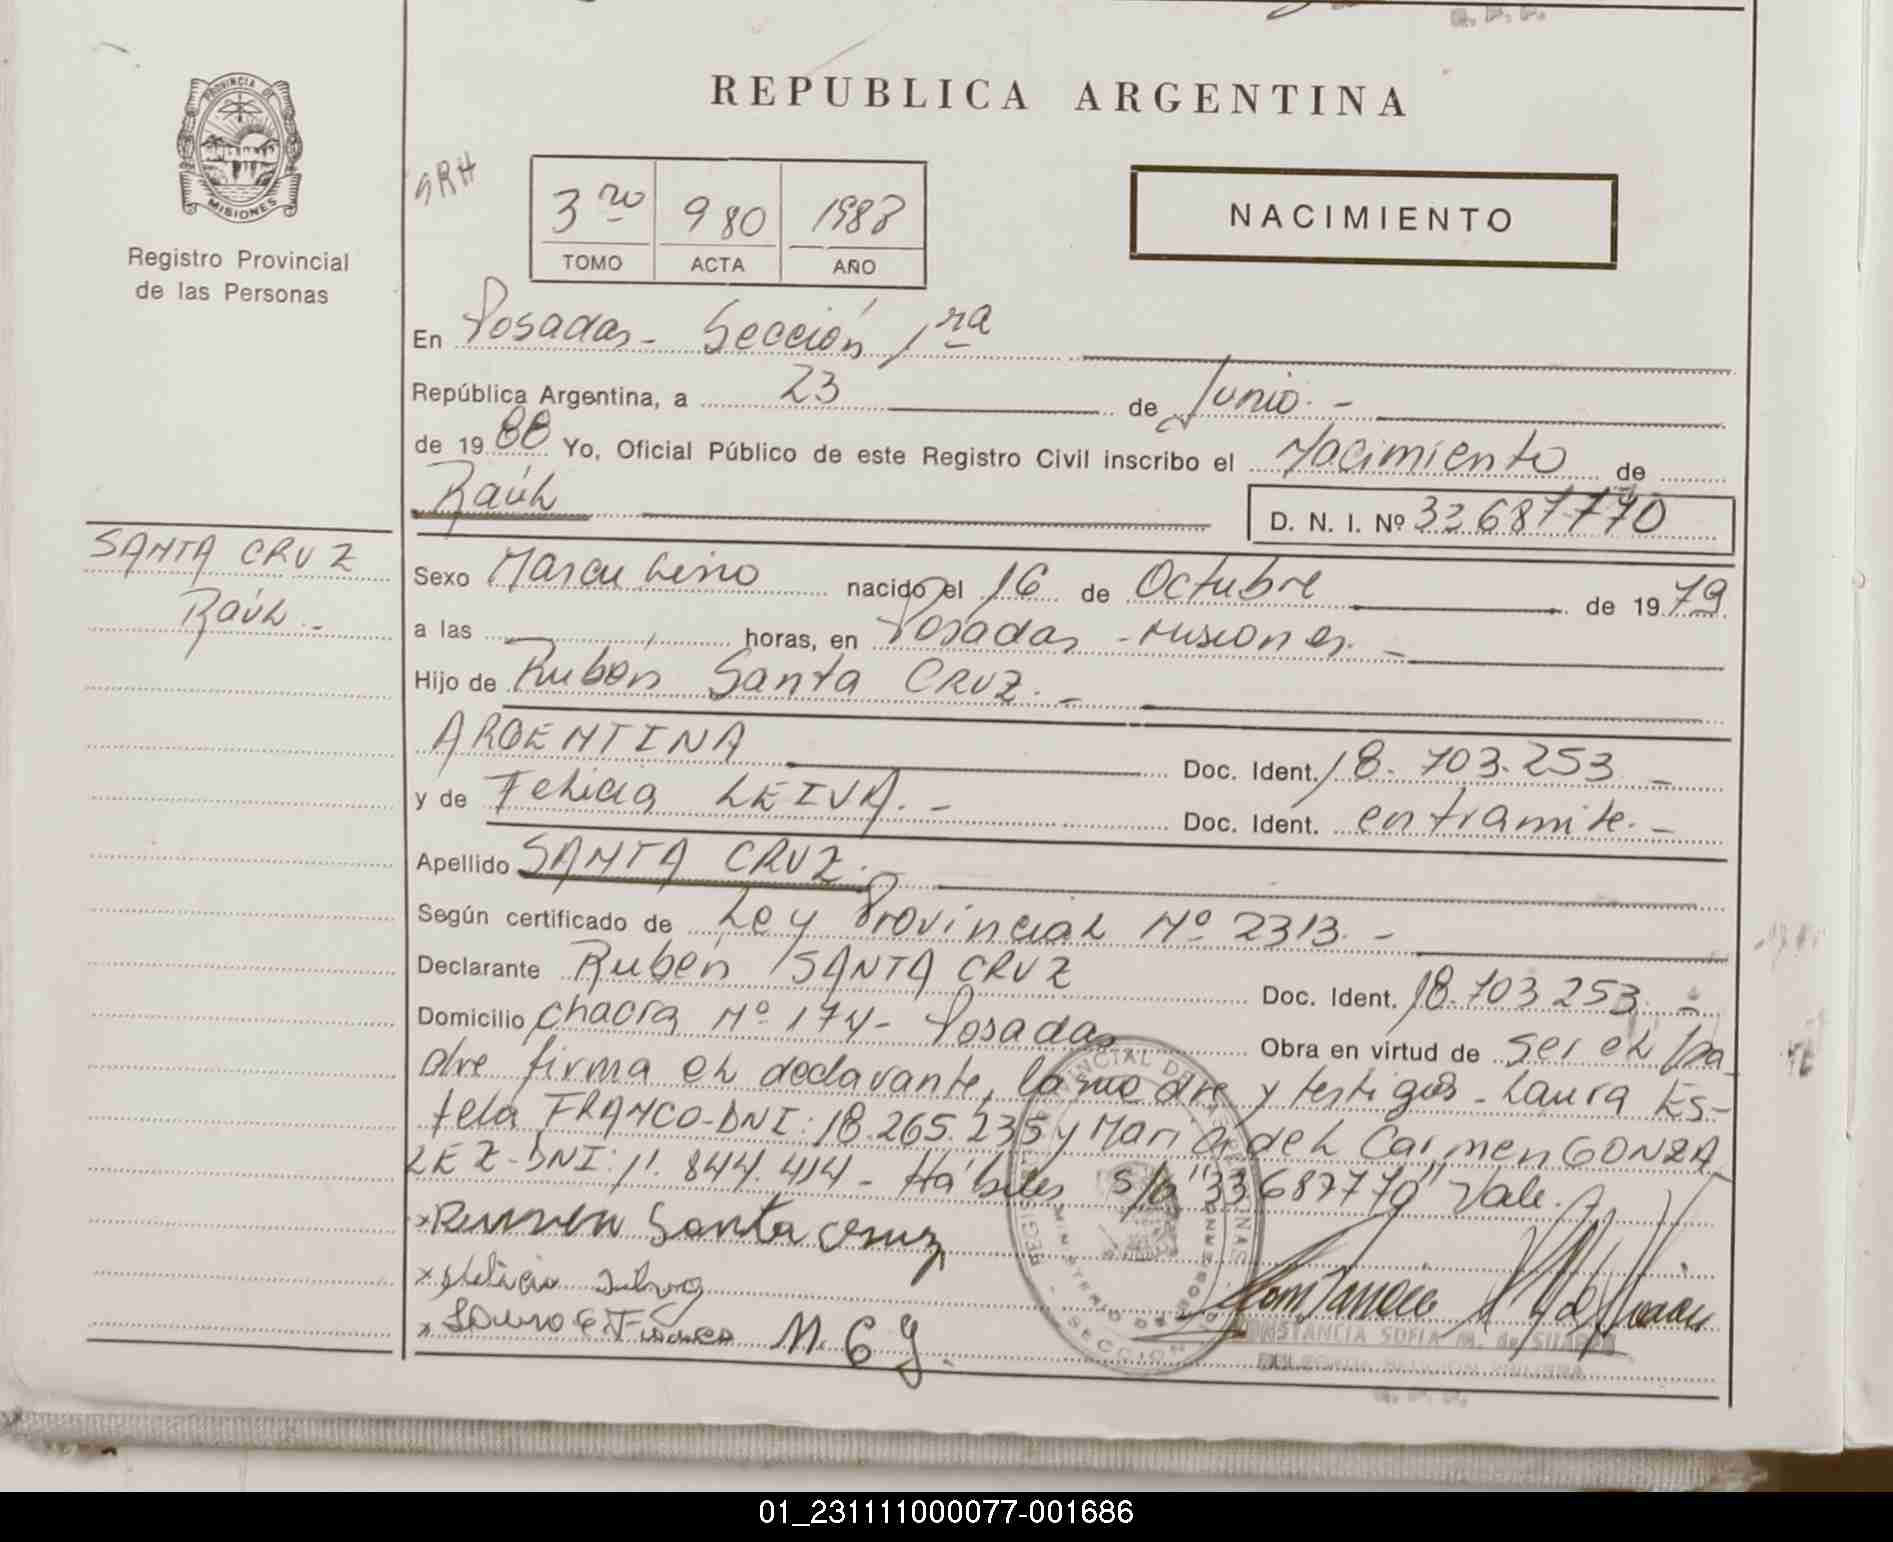 REPUBLICA ARGENTINA
PROVINCIA DE
MISIONES
Registro Provincial
de las Personas
SRH
3ro 980 1988
TOMO ACTA AÑO
NACIMIENTO
En Posadas - Sección 1ra
República Argentina, a 23 de Junio. -
de 1988 Yo, Oficial Público de este Registro Civil inscribo el Nacimiento de
Raúl
D. N. I. Nº 33687770
SANTA CRUZ
Raúl -
Sexo Masculino nacido el 16 de Octubre de 1979
a las horas, en Posadas - Misiones. -
Hijo de Rubén Santa CRUZ. -
ARGENTINA Doc. Ident. 18.703.253 -
y de Felicia LEIVA. - Doc. Ident. en tramite. -
Apellido SANTA CRUZ.
Según certificado de Ley Provincial Nº 2313. -
Declarante Rubén SANTA CRUZ Doc. Ident. 18.703.253. -
Domicilio chacra Nº 174 - Posadas Obra en virtud de ser el pa-
dre firma el declarante, la madre y testigos - Laura Es-
tela FRANCO - DNI: 18.265.235 y María del Carmen GONZA-
LEZ - DNI: 11.844.414 - Hábiles s/b "33687770" Vale.
x Rumven Santa Cruz
x
x M. C G.
CONSTANCIA SOFIA M. de SUAREZ
R. P. P.
01_231111000077-001686